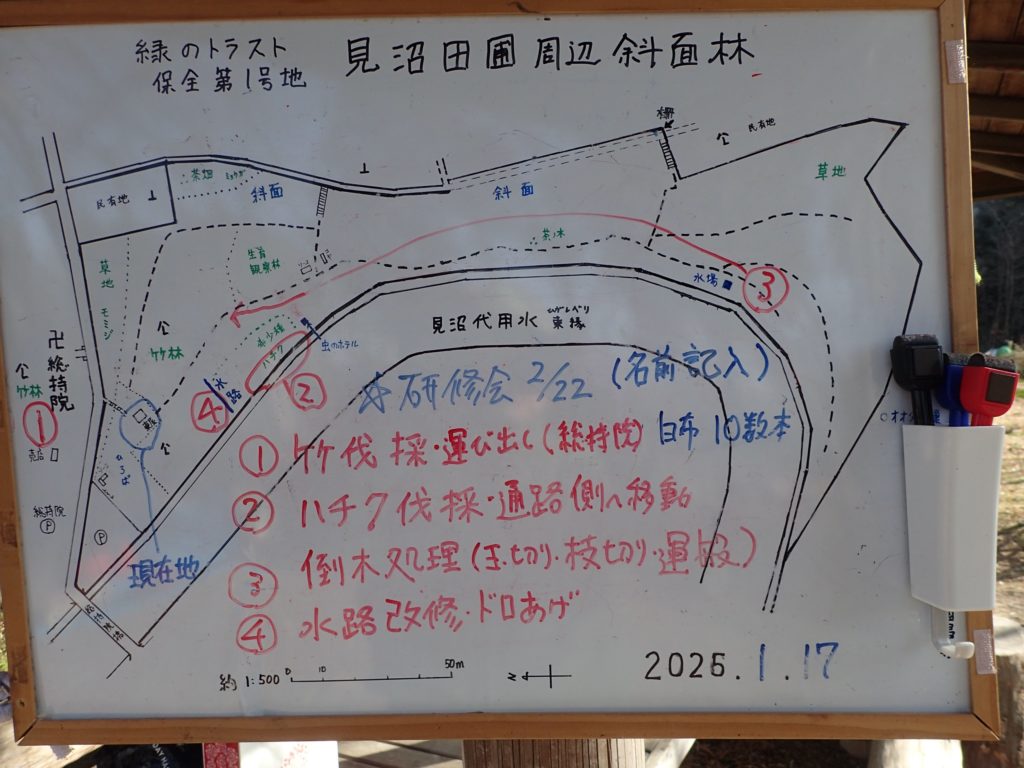 緑のトラスト
保全第1号地
見沼田圃周辺斜面林
柵
民有地
草地
茶畑
斜面
斜面
民有地
生育
観察林
茶ノ木
水場
③
草地
モミジ
竹林
希少種
ハチク
虫のホテル
見沼代用水 東縁
卍総持院
竹林
①
売店
総持院
Ⓟ
Ⓟ
④
水路
②
☆研修会 2/22 (名前記入)
白布 10数本
① 竹伐採・運び出し(総持院)
② ハチク伐採・通路側へ移動
③ 倒木処理(玉切り・枝切り・運搬)
④ 水路改修・ドロあげ
現在地
約1:500
0 10 50m
N
2026.1.17